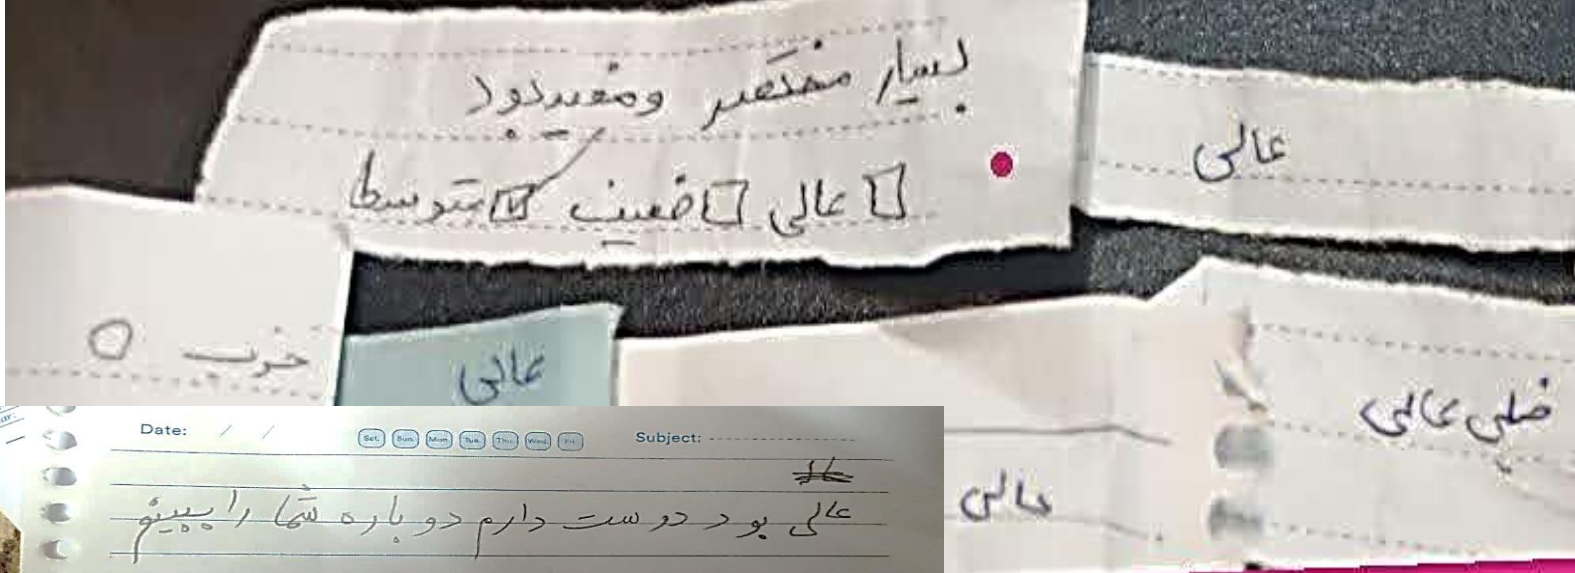 بسیار مختصر و مفید بود
عالی ضعیف متوسط
عالی
خوب
عالی
خیلی عالی
عالی
Date: / / Sat. Sun. Mon. Tue. Thu. Wed. Fri. Subject:
عالی بود دوست دارم دوباره شما را ببینم